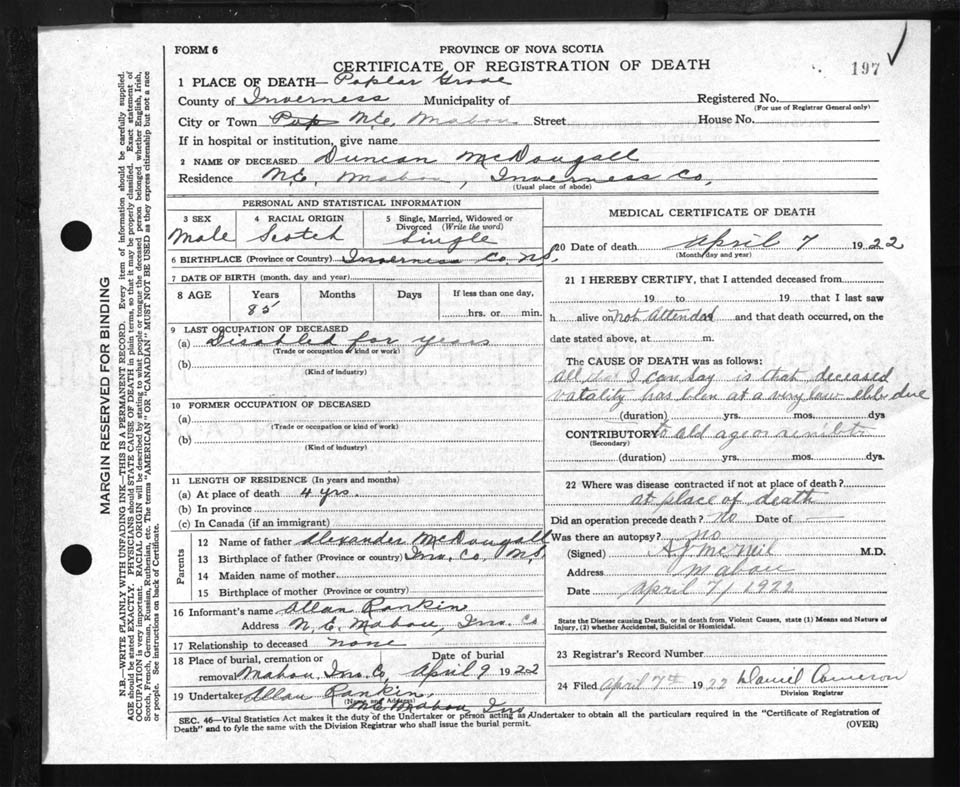 FORM 6
PROVINCE OF NOVA SCOTIA
CERTIFICATE OF REGISTRATION OF DEATH
197
1 PLACE OF DEATH— Poplar Grove
County of Inverness Municipality of
Registered No.
(For use of Registrar General only)
City or Town N.E. Mabou Street House No.
If in hospital or institution, give name
2 NAME OF DECEASED Duncan McDougall
Residence N.E. Mabou, Inverness Co,
(Usual place of abode)
PERSONAL AND STATISTICAL INFORMATION
3 SEX
Male
4 RACIAL ORIGIN
Scotch
5 Single, Married, Widowed or
Divorced (Write the word)
Single
6 BIRTHPLACE (Province or Country) Inverness Co. NS.
7 DATE OF BIRTH (month, day and year)
8 AGE Years Months Days If less than one day,
85 hrs. or min.
9 LAST OCCUPATION OF DECEASED
(a) Disabled for years
(Trade or occupation or kind or work)
(b)
(Kind of industry)
10 FORMER OCCUPATION OF DECEASED
(a)
(Trade or occupation or kind or work)
(b)
(Kind of industry)
11 LENGTH OF RESIDENCE (In years and months)
(a) At place of death 4 yrs.
(b) In province
(c) In Canada (if an immigrant)
Parents
12 Name of father Alexander McDougall
13 Birthplace of father (Province or country) Inv. Co. N.S.
14 Maiden name of mother
15 Birthplace of mother (Province or country)
16 Informant's name Allan Rankin
Address N. E. Mabou, Inv. Co
17 Relationship to deceased none
18 Place of burial, cremation or Date of burial
removal Mabou, Inv. Co, April 9 1922
19 Undertaker Allan Rankin,
(Name and Address)
N.E. Mabou Inv
MEDICAL CERTIFICATE OF DEATH
20 Date of death April 7 1922
(Month, day and year)
21 I HEREBY CERTIFY, that I attended deceased from
19 to 19 that I last saw
h alive on Not Attended and that death occurred, on the
date stated above, at m.
The CAUSE OF DEATH was as follows:
All that I can say is that deceased
vatality has been at a very low ebb due
(duration) yrs. mos. dys
CONTRIBUTORY to old age or senility
(Secondary)
(duration) yrs. mos. dys.
22 Where was disease contracted if not at place of death?
at place of death
Did an operation precede death? no Date of —
Was there an autopsy? no
(Signed) A J McNeil M.D.
Address Mabou
Date April 7/ 1922
State the Disease causing Death, or in death from Violent Causes, state (1) Means and Nature of
Injury, (2) whether Accidental, Suicidal or Homicidal.
23 Registrar's Record Number
24 Filed April 7th 1922 Daniel Cameron
Division Registrar
SEC. 46—Vital Statistics Act makes it the duty of the Undertaker or person acting as Undertaker to obtain all the particulars required in the "Certificate of Registration of
Death" and to fyle the same with the Division Registrar who shall issue the burial permit.
(OVER)
MARGIN RESERVED FOR BINDING
N.B.—WRITE PLAINLY WITH UNFADING INK—THIS IS A PERMANENT RECORD. Every item of information should be carefully supplied.
AGE should be stated EXACTLY. PHYSICIANS should STATE CAUSE OF DEATH in plain terms, so that it may be properly classified. Exact statement of
OCCUPATION is very important. RACIAL ORIGIN will be described by stating to what people or tongue the deceased person belonged whether English, Irish,
Scotch, French, German, Russian, Ruthenian, etc. The terms "AMERICAN" OR "CANADIAN" MUST NOT BE USED as they express citizenship but not a race
or people. See instructions on back of Certificate.